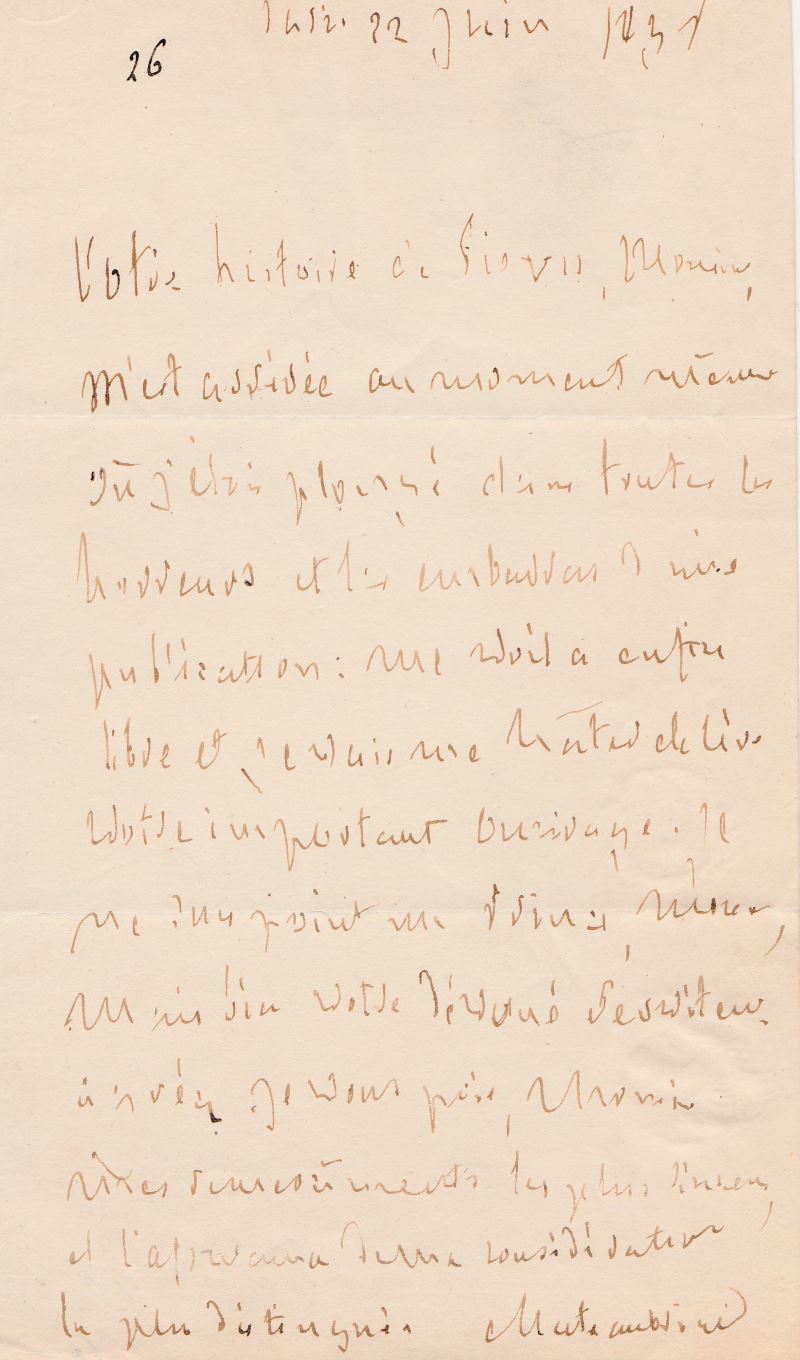 Paris 22 Juin
26
Votre histoire de Monsieur,
m'est arrivée au moment même
où j'étois plongé dans toutes les
horreurs et les embarras d'une
publication : me voilà enfin
libre et je vais me hâter de lire
votre important ouvrage. Je
ne suis point un Monsieur,
Mais bien votre dévoué serviteur.
agréez je vous prie, Monsieur
mes remerciements les plus sincères,
et l'assurance de ma considération
la plus distinguée Chateaubriand